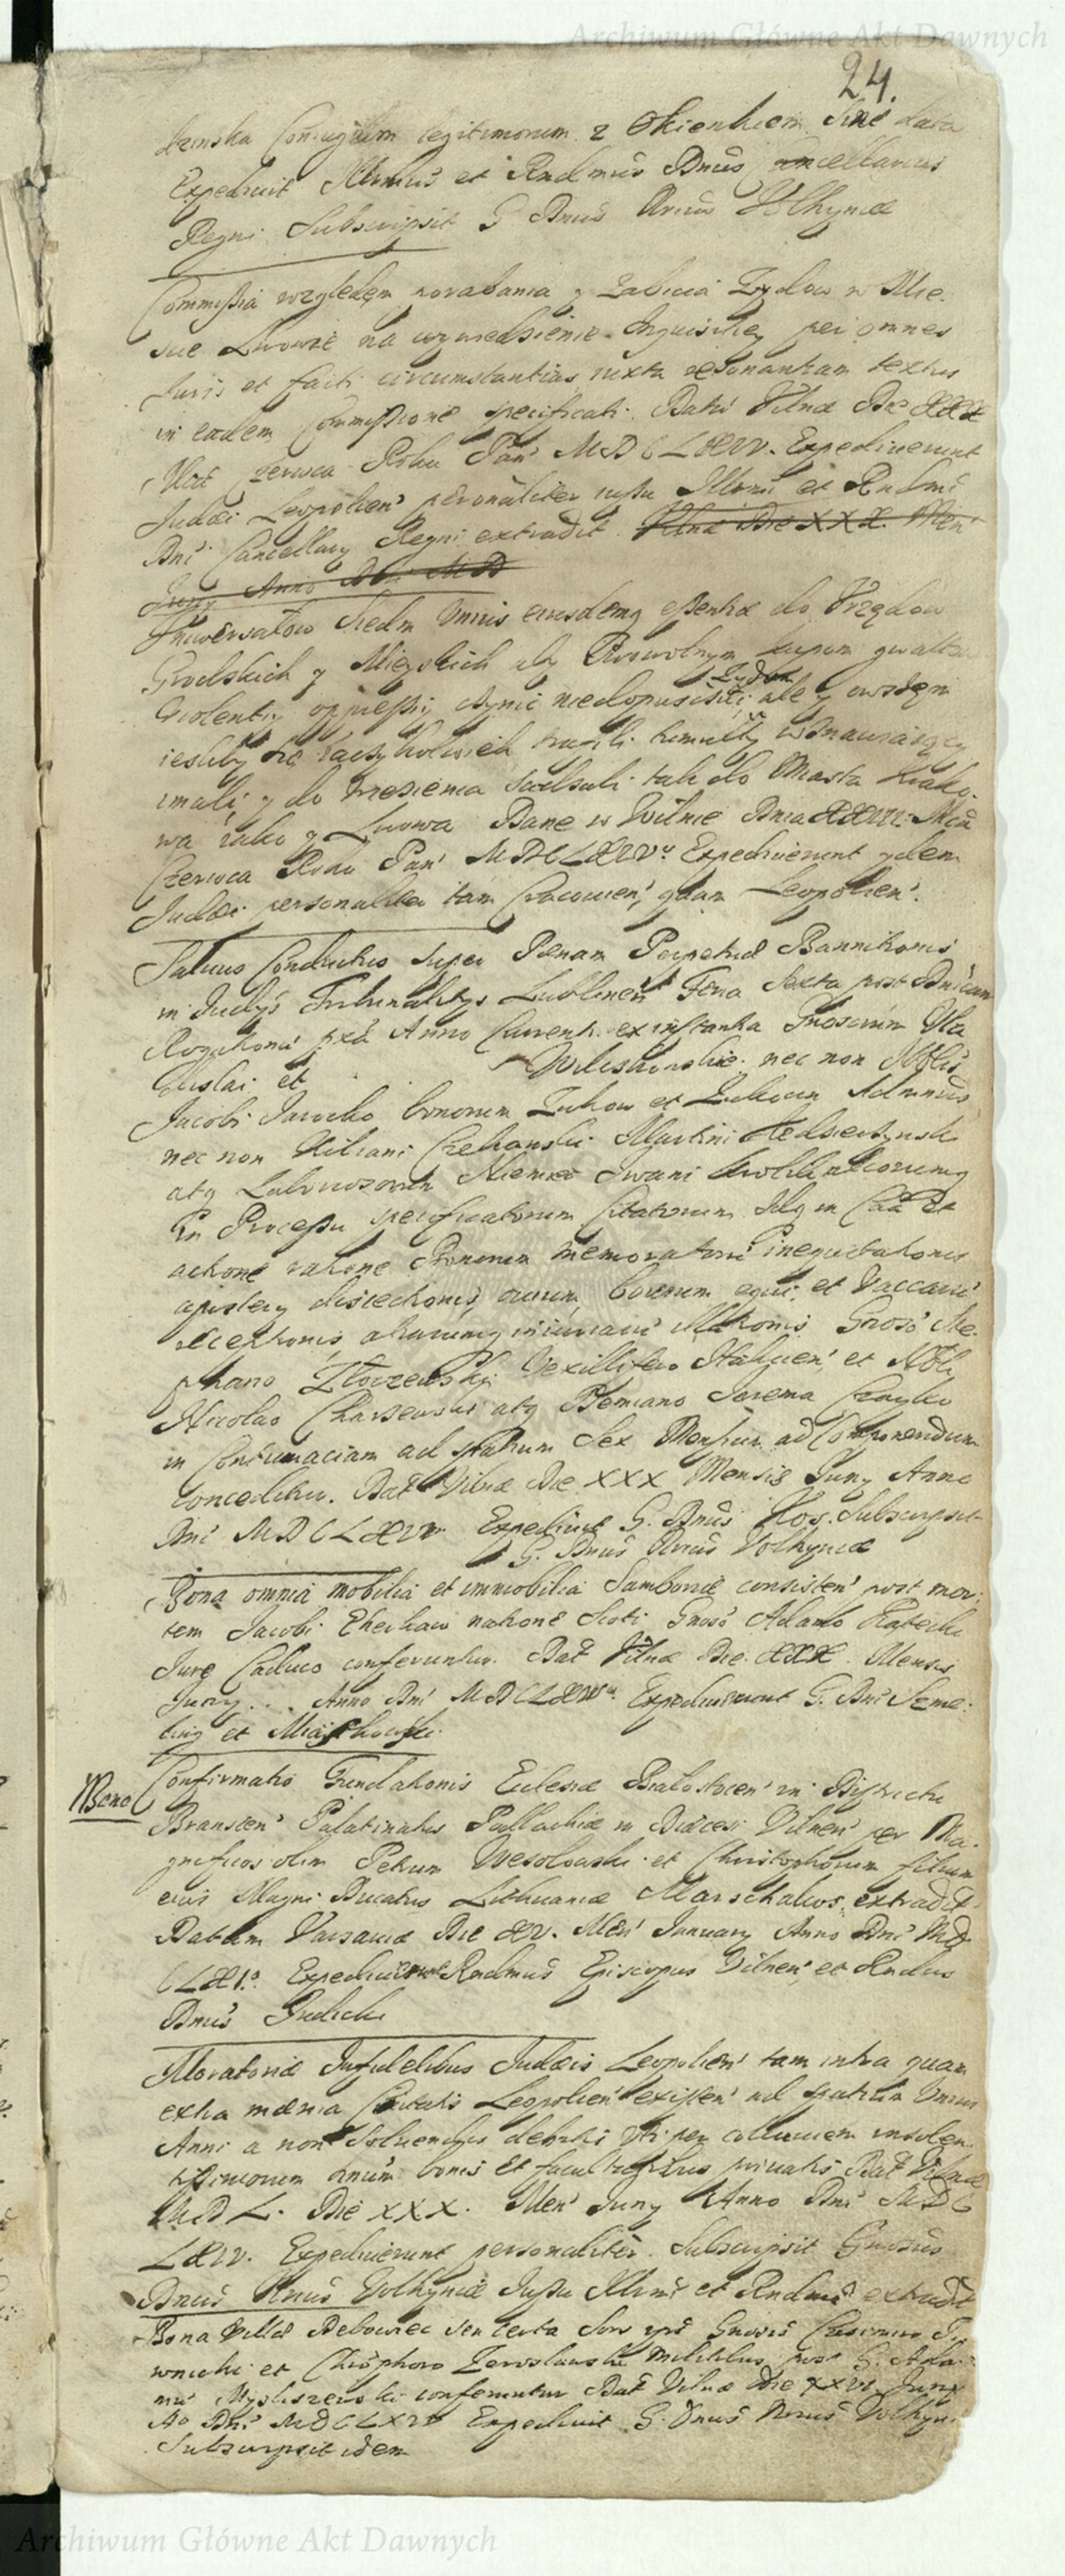 Archiwum Główne Akt Dawnych
24.
Coniugum legitimorum z Okienkiem Sine data
Expedivit Illrmus et Rndmus Dnus Cancellarius
Regni Subscripsit G Dnus Nrius Volhyniæ
Commissia względem porabania y zabicia Zydow w Mie.
scie Lwowie na wywiedzienie Inquisitiey per omnes
Juris et facti circumstantias iuxta resonantiam textus
in eadem Commissione specificati. Datū Vilnæ Die XXX
Czerwca Roku Pan̄ MDCLXIV. Expediverunt
Judæi Leopolien̄ personaliter iussu Illrmi et Rndmi
Dni Cancellarij Regni extradit. Vilnæ Die XXX. Men̄
Juny Anno Dni MD
Uniwersałow Siedm unius eiusdemq̃ essentiæ do Vrzędow
Grodskich y Mieyskich aby Swowolnym kupom gwałtu
violentiy oppressiy czynic niedopuscili Zydom ale y owszem
iesliby się iaczykolwiek trafili tumulty wszczynaiący
imali y do więzienia sadzali tak do Miasta Krako.
wa iako y Lwowa Dane w Wilnie Dnia Mca
Czerwca Roku Pan̄ MDCLXIV. Expediverunt ydem
Judæi personaliter tam Cracovien̄, quam Leopolien̄.
Salvus Conductus super Pænam Perpetuæ Bannitionis
in Judijs Tribunalitijs Lublinen̄ Feria Sexta post Dnicam
Rogationū pxa Anno Currenti ex instantia Gnosorum Vla
dislai et Wiliskowskie nec non Nobilis
Jacobi Jarocko bonorum Zukow et Zukocin Admnris
nec non Kiliani Czekanski Martini
atq̃ Niemiec Iwani
In Processu specificatorum Citatorum Ilq̃ in Caā Et
actione ratione Bonorum memoratorū inequitationis
apistery disiectionis, ovium, bovum equi, et Vaccarū
receptionis, aliarumq̃ iniuriarū illationis Gnoso Ste.
phano Złoczewski Vexillifero Halicien̄, et Nobili
Nicolao atq̃ Demiano Jarema Czayko
in Contumaciam ad spatium Sex Mensium ad Componendum
conceditur. Dat̄ Vilnæ Die XXX Mensis Juny Anno
Dni MDCLXIV Expedivit G. Dnus Kos. Subscripsit
G. Dnus Nrius Volhyniæ
Bona omnia mobilia et immobilia Samboriæ consisten̄ post mor:
tem Jacobi natione Scoti Gnoso Adamo
Jure Caduco conferuntur. Dat̄ Vilnæ Die. XXX. Mensis
Juny... Anno Dni MDCLXIV. Expediverunt G. Dni Szme:
ling et
Bona Confirmatio Fundationis Ecclesiæ Białostocien̄ in Districtu
Branscen̄ Palatinatus Podlachiæ in Diæcesi Vilnen̄ per Ma.
gnificos olim Petrum Wesołowski et Christophorum filium
eius Magni Ducatus Lithuaniæ Marschalcos, extradit
Datum Varsaviæ Die XV. Men̄ January Anno Dni MD
CLXI. Expediverunt Rndmus Episcopus Vilnen̄, et Rndus
Dnus Gnilicki
Moratoriæ Infidelibus Judæis Leopolien̄ tam intra quam
extra mænia Civitatis Leopolien̄ existen̄ ad spatium Unius
Anni a non solvendis debitis Vti per colluviem insolen
tissimorum hominū bonis et facultatibus privatis Dat̄ Vilnæ
MDL. Die XXX. Men̄ Juny Anno Dni MDC
LXIV. Expediverunt personaliter. Subscripsit Gnosus
Dnus Nrius Volhyniæ Jussu Illrmi et Rndmi extradit
Bona Villæ Debowiec Sen certa Sors ypsi Gnosis Casimiro
et Chrisphoro Zeroslawski Militibus post G. Ada:
mi Mysliszewski conferuntur Dat̄ Vilnæ Die XXVI Juny
Ao Dni MDCLXIV Expedivit G. Dnus Nrius Volhyn.
Subscripsit idem
Archiwum Główne Akt Dawnych